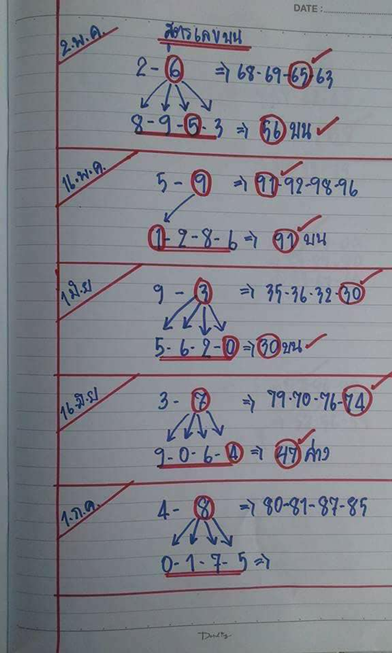 DATE :
สูตรเลขบน
2.พ.ค.
2 - 6 => 68-69-65-63
8-9-5-3 => 56 บน ✓
16.พ.ค.
5 - 9 => 91-92-98-96
1-2-8-6 => 91 บน
1 มิ.ย
9 - 3 => 35-36-32-30
5-6-2-0 => 30 บน ✓
16 มิ.ย
3 - 7 => 79-70-76-74
9-0-6-4 => 47 ล่าง
1.ก.ค.
4 - 8 => 80-81-87-85
0-1-7-5 =>